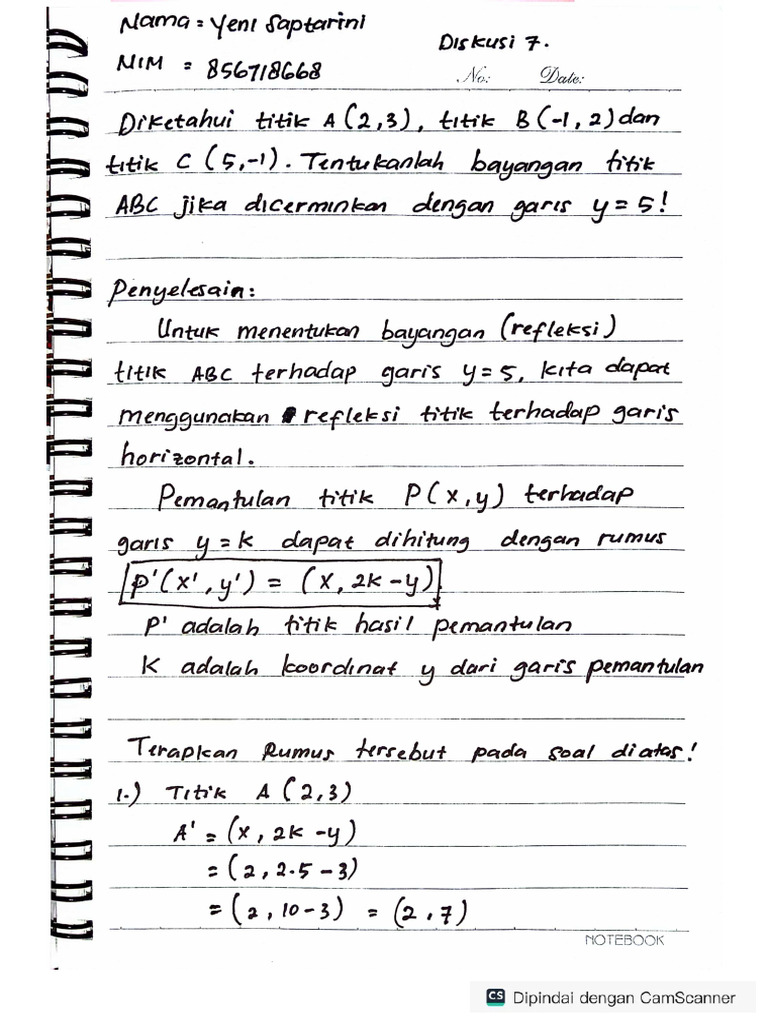 Nama = Yeni Saptarini
Diskusi 7.
NIM = 856718668
No: Date:
Diketahui titik A(2,3), titik B(-1,2) dan
titik C (5,-1). Tentukanlah bayangan titik
ABC jika dicerminkan dengan garis y = 5!
Penyelesain:
Untuk menentukan bayangan (refleksi)
titik ABC terhadap garis y = 5, kita dapat
menggunakan refleksi titik terhadap garis
horizontal.
Pemantulan titik P(x,y) terhadap
garis y = k dapat dihitung dengan rumus
P'(x', y') = (x, 2k - y)
P' adalah titik hasil pemantulan
K adalah koordinat y dari garis pemantulan
Terapkan Rumus tersebut pada soal diatas!
1.) Titik A (2,3)
A' = (x, 2k - y)
= (2, 2.5 - 3)
= (2, 10-3) = (2,7)
NOTEBOOK
CS Dipindai dengan CamScanner